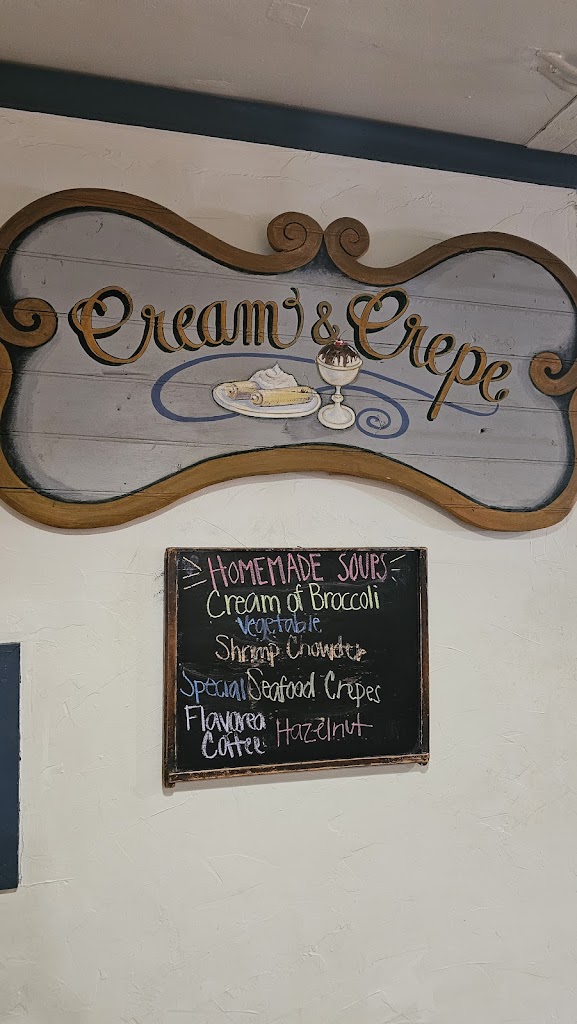 Cream & Crepe
HOMEMADE SOUPS
Cream of Broccoli
Vegetable
Shrimp Chowder
Special Seafood Crepes
Flavored
Coffee Hazelnut